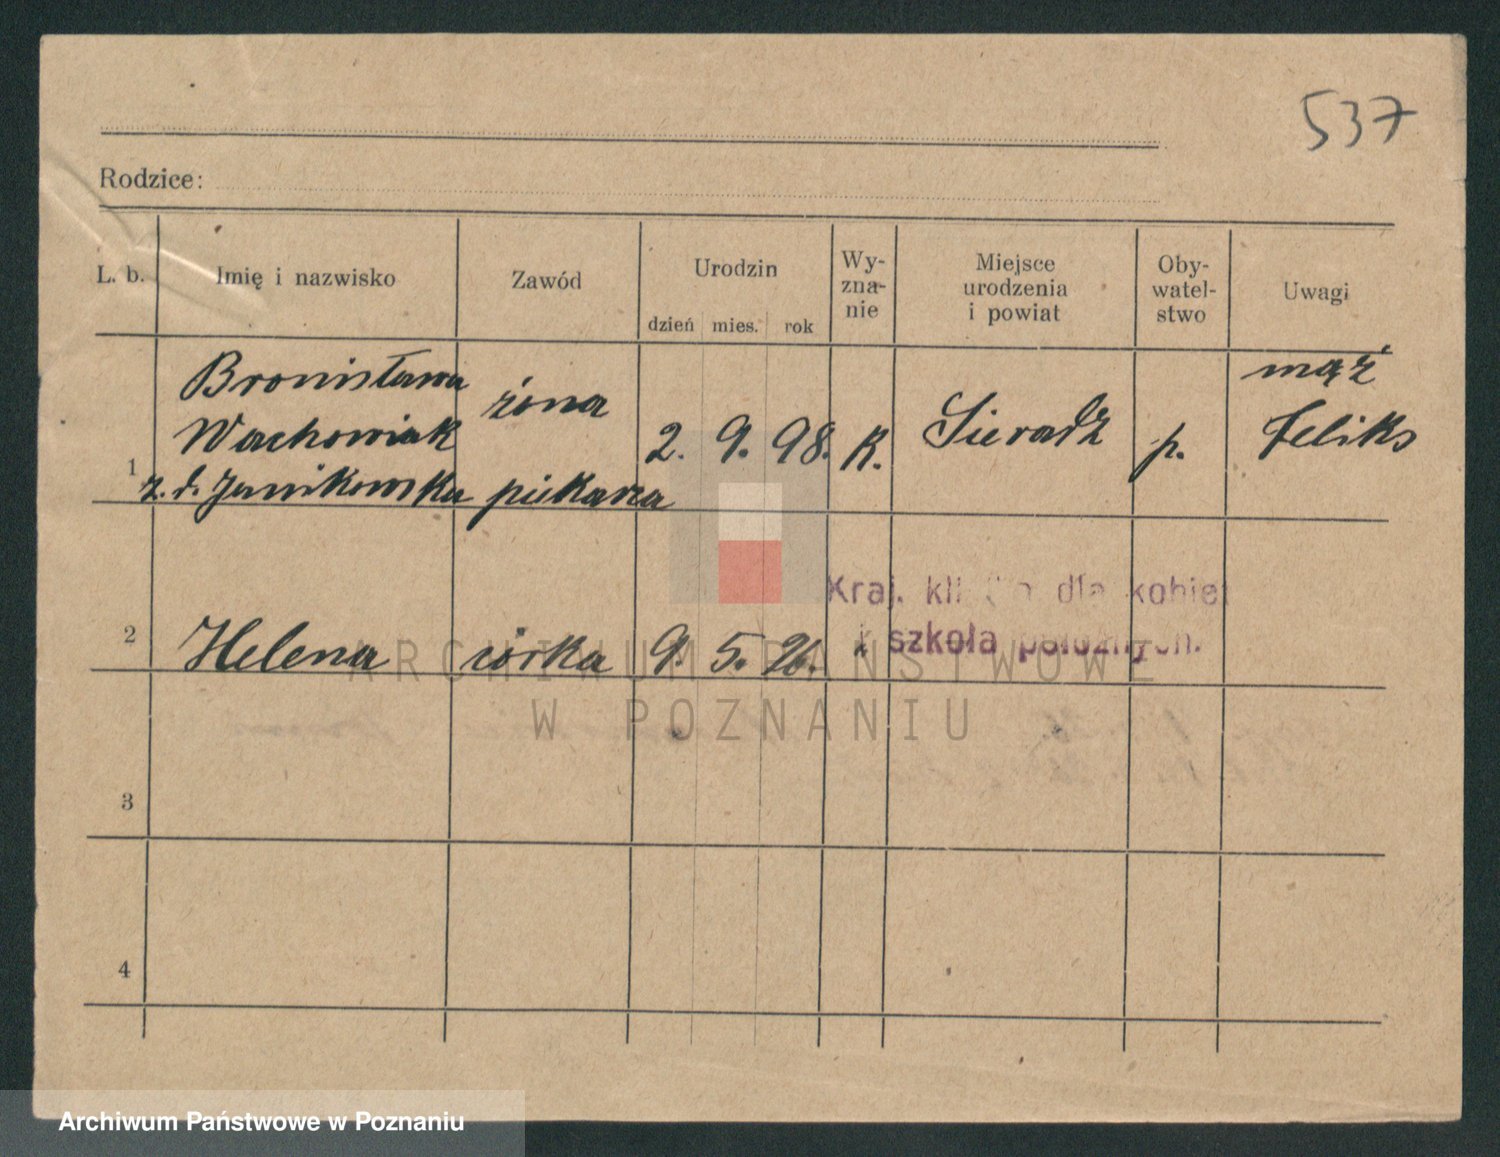 537
Rodzice:
L. b. Imię i nazwisko Zawód Urodzin dzień mies. rok Wy-zna-nie Miejsce urodzenia i powiat Oby-watel-stwo Uwagi
Bronisława żona mąż
Wachowiak 2. 9. 98. K. Sieradz p. Feliks
1 z. d. Janikowska piekarza
Kraj. klinika dla kobiet
2 Helena córka 9. 5. 26. i szkoła położnych.
ARCHIWUM PAŃSTWOWE
W POZNANIU
3
4
Archiwum Państwowe w Poznaniu